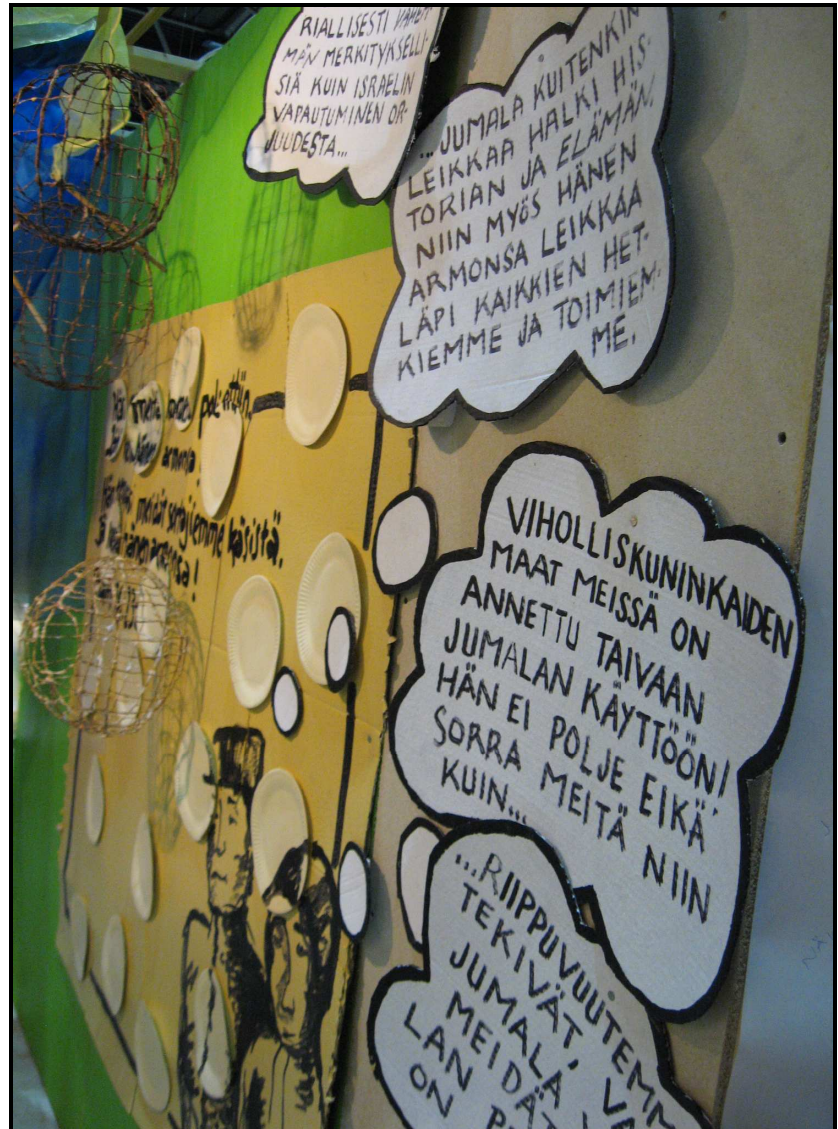 RIALLISESTI VÄHEM-
MÄN MERKITYKSELLI-
SIÄ KUIN ISRAELIN
VAPAUTUMINEN OR-
JUUDESTA...
...JUMALA KUITENKIN
LEIKKAA HALKI HIS-
TORIAN JA ELÄMÄN,
NIIN MYÖS HÄNEN
ARMONSA LEIKKAA
LÄPI KAIKKIEN HET-
KIEMME JA TOIMIEM-
ME.
meidät sortajiemme käsistä.
VIHOLLISKUNINKAIDEN
MAAT MEISSÄ ON
ANNETTU TAIVAAN
JUMALAN KÄYTTÖÖN!
HÄN EI POLJE EIKÄ
SORRA MEITÄ NIIN
KUIN...
...RIIPPUVUUTEMM
TEKIVÄT,
JUMALA
MEIDÄT
LAN
ON